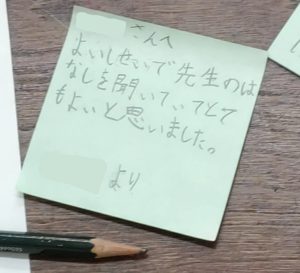 さんへ
よいしせいで先生のは
なしを聞いていてとて
もよいと思いました。
より